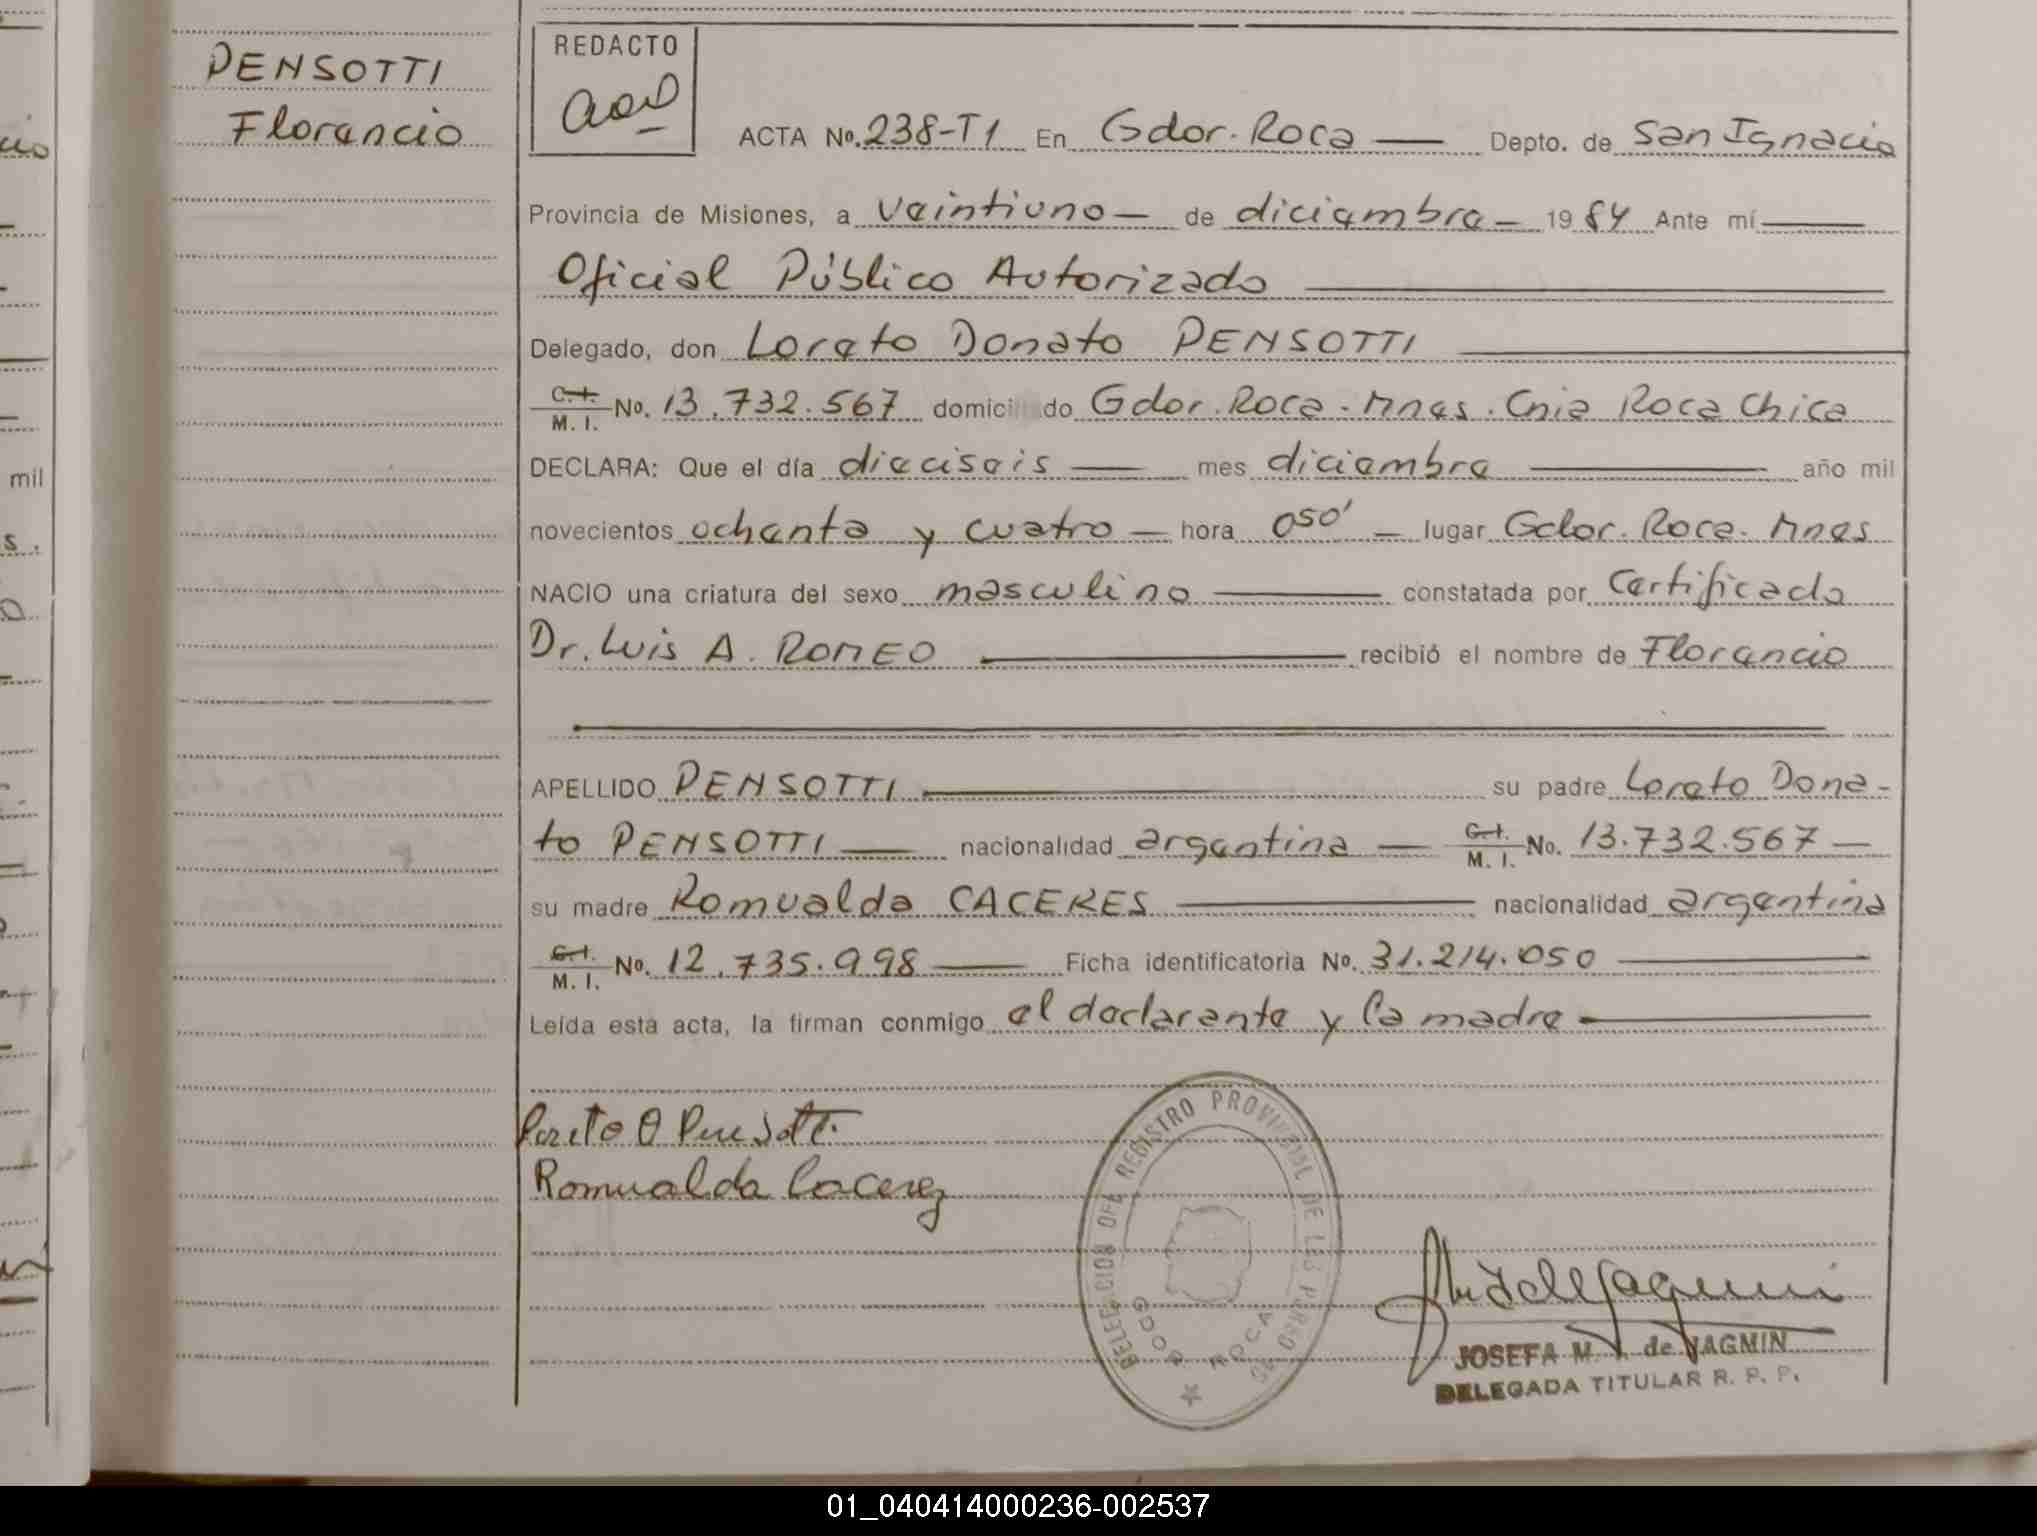 PENSOTTI
Florencio
REDACTO
ACTA No. 238-T1 En Gdor. Roca — Depto. de San Ignacio
Provincia de Misiones, a veintiuno — de diciembre — 1984 Ante mí
Oficial Público Autorizado
Delegado, don Loreto Donato PENSOTTI
C.I. M. I. No. 13.732.567 domici do Gdor. Roca - Mnes. Cnia Roca Chica
DECLARA: Que el día dieciseis — mes diciembre — año mil
novecientos ochenta y cuatro — hora 050' — lugar Gdor. Roca. Mnes
NACIO una criatura del sexo masculino — constatada por Certificado
Dr. Luis A. ROMEO — recibió el nombre de Florencio
APELLIDO PENSOTTI — su padre Loreto Dona-
to PENSOTTI — nacionalidad argentina — C.I. M. I. No. 13.732.567 —
su madre Romualda CACERES — nacionalidad argentina
C.I. M. I. No. 12.735.998 — Ficha identificatoria No. 31.214.050
Leída esta acta, la firman conmigo el declarante y la madre
Loreto D Pensotti
Romualda Cacerez
DELEGACION DEL REGISTRO PROVINCIAL DE LAS PERSONAS
GDOR ROCA
JOSEFA M. de YAGMIN
DELEGADA TITULAR R. P. P.
mil
s.
01_040414000236-002537